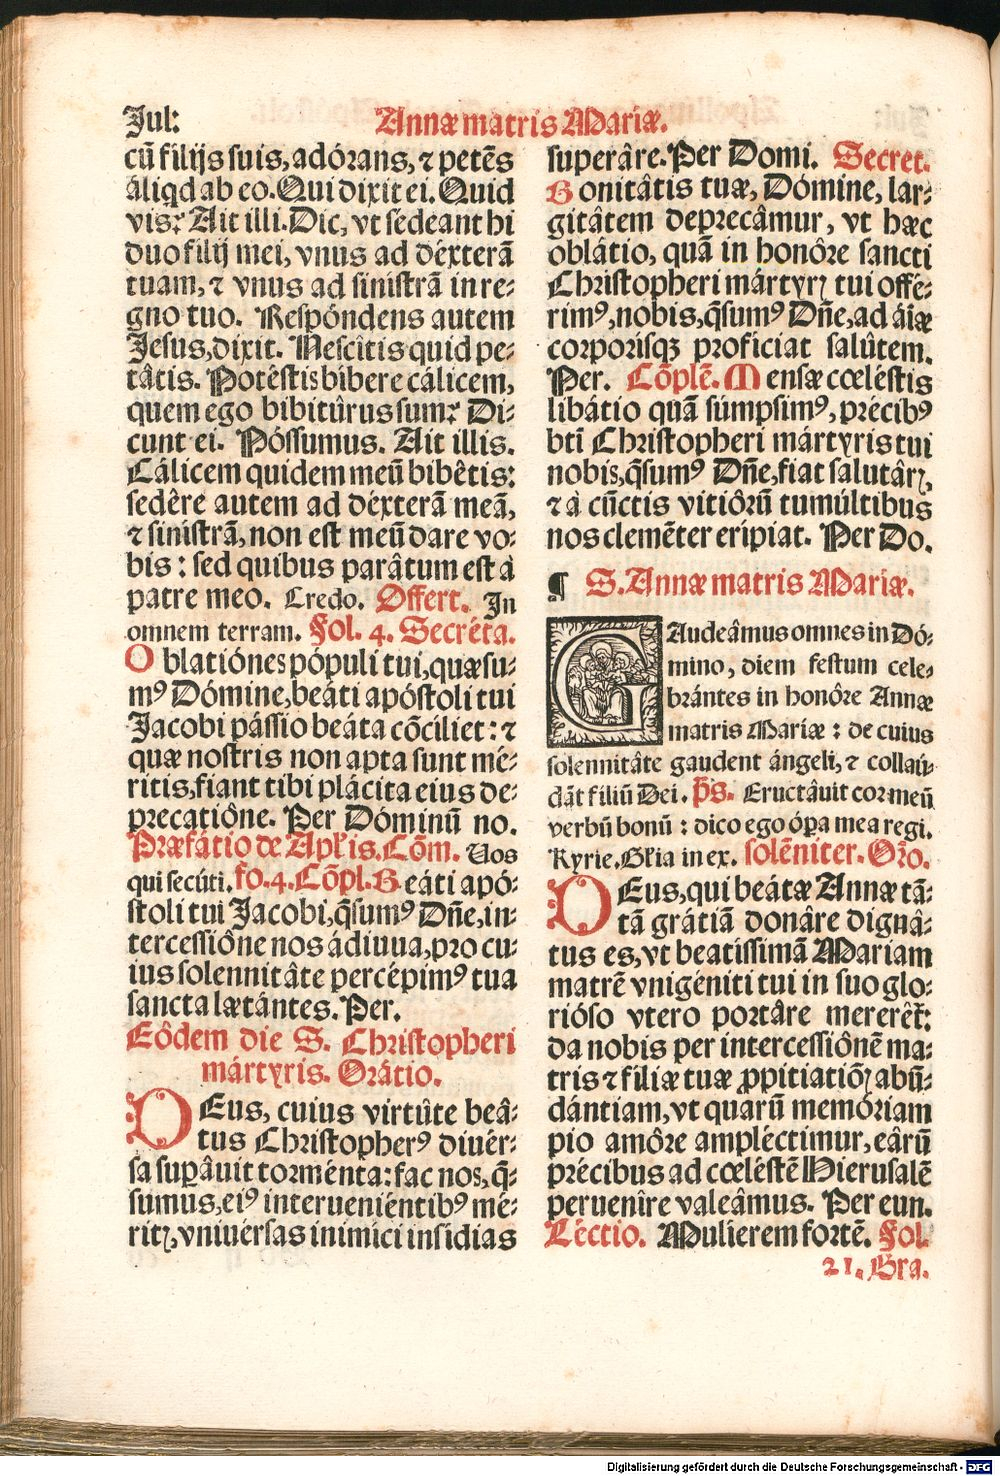 Jul:
Annæ matris Mariæ.
cū filijs suis, adórans, ⁊ petēs
áliqd ab eo. Qui dixit ei. Quid
vis? Ait illi. Dic, vt sédeant hi
duo filij mei, vnus ad déxterā
tuam, ⁊ vnus ad sinistrā in re-
gno tuo. Respóndens autem
Jesus, dixit. Nescîtis quid pe-
tâtis. Potéstis bibere cálicem,
quem ego bibitûrus sum? Di-
cunt ei. Póssumus. Ait illis.
Cálicem quidem meū bibêtis:
sedêre autem ad déxterā meā,
⁊ sinistrā, non est meū dare vo-
bis: sed quibus parâtum est à
patre meo. Credo. Offert. In
omnem terram. Fol. 4. Secréta.
Oblatiónes pópuli tui, quæsu-
mꝰ Dómine, beáti apóstoli tui
Jacobi pássio beáta cōciliet: ⁊
quæ nostris non apta sunt mé-
ritis, fiant tibi plácita eius de-
precatiône. Per Dóminū no.
Præfátio de Apl'is. Cōm. Vos
qui secúti. fo. 4. Cōpl. Beáti apó-
stoli tui Jacobi, q̄sumꝰ Dn̄e, in-
tercessiône nos ádiuua, pro cu-
ius solennitâte percépimꝰ tua
sancta lætántes. Per.
Eôdem die S. Christopheri
mártyris. Orátio.
DEus, cuius virtûte beâ-
tus Christopherꝰ diuér-
sa suꝑâuit torménta: fac nos, q̄-
sumus, eiꝰ interueniéntibꝰ mé-
ritꝭ, vniuérsas inimici insídias
superâre. Per Domi. Secret.
Bonitâtis tuæ, Dómine, lar-
gitâtem deprecâmur, vt hæc
oblâtio, quā in honôre sancti
Christopheri mártyrꝭ tui offé-
rimꝰ, nobis, q̄sumꝰ Dn̄e, ad áīæ
corporisqꝫ proficiat salûtem.
Per. Cōplē. Mensæ cœléstis
libátio quā súmpsimꝰ, précibꝰ
bti̅ Christopheri mártyris tui
nobis, q̄sumꝰ Dn̄e, fiat salutârꝭ,
⁊ à cūctis vitiôrū tumúltibus
nos clemēter erípiat. Per Do.
¶ S. Annæ matris Mariæ.
GAudeâmus omnes in Dó-
mino, diem festum cele-
brántes in honôre Annæ
matris Mariæ: de cuius
solennitâte gaudent ángeli, ⁊ collaú-
dāt filiū Dei. p̄s. Eructâuit cor meū
verbū bonū: dico ego óꝑa mea regi.
Kyrie. Gl'ia in ex. solēniter. Orō.
DEus, qui beátæ Annæ tā-
tā grátiā donâre dignâ-
tus es, vt beatíssimā Mariam
matrē vnigéniti tui in suo glo-
rióso vtero portâre mererêt̄:
da nobis per intercessiônē ma-
tris ⁊ filiæ tuæ ꝓpitiatiōꝭ abū-
dántiam, vt quarū memóriam
pio amôre ampléctimur, eârū
précibus ad cœléstē Hierusalē
peruenîre valeâmus. Per eun.
Léctio. Mulíerem fortē. Fol.
21. Gra.
Digitalisierung gefördert durch die Deutsche Forschungsgemeinschaft - DFG